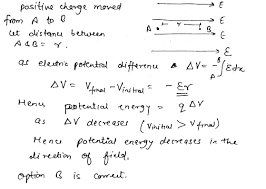 positive charge moved
from A to B
let distance between
A & B = r.
E
E
A B E
E
as electric potential difference ΔV = -∫Edx
B
A
ΔV = Vfinal - Vinitial = - Er
Hence potential energy = qΔV
as ΔV decreases (Vinitial > Vfinal)
Hence potential energy decreases in the
direction of field.
Option B is correct.